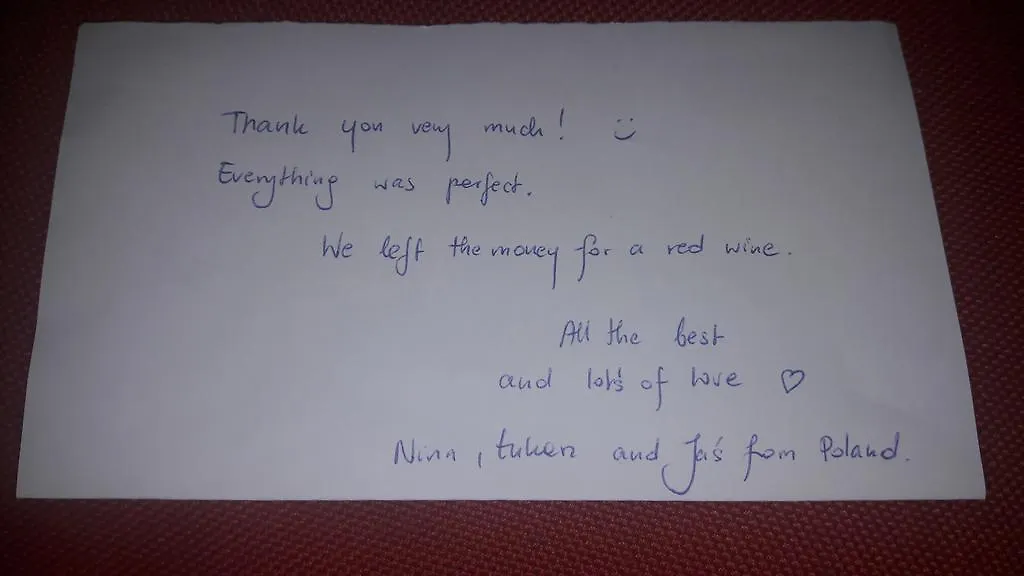 Thank you very much! :)
Everything was perfect.
We left the money for a red wine.
All the best
and lot's of love ♡
Nina, and Jaś from Poland.